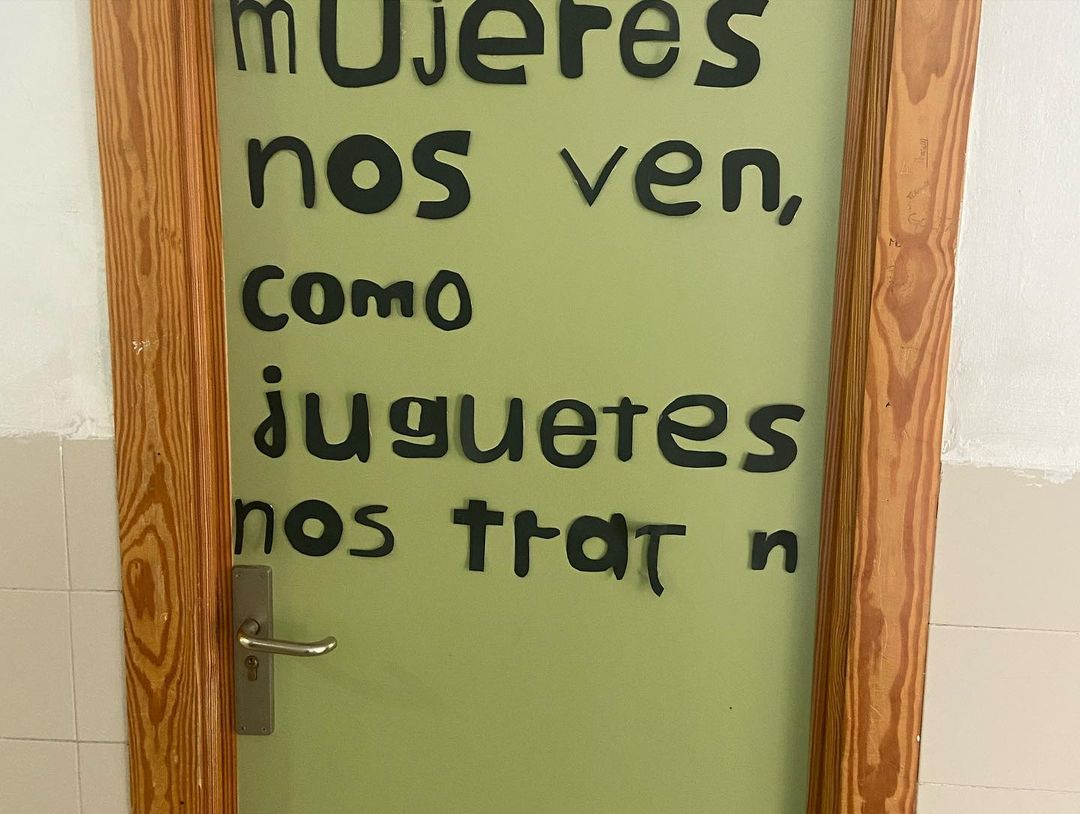 mujeres
nos ven,
como
juguetes
nos trat n